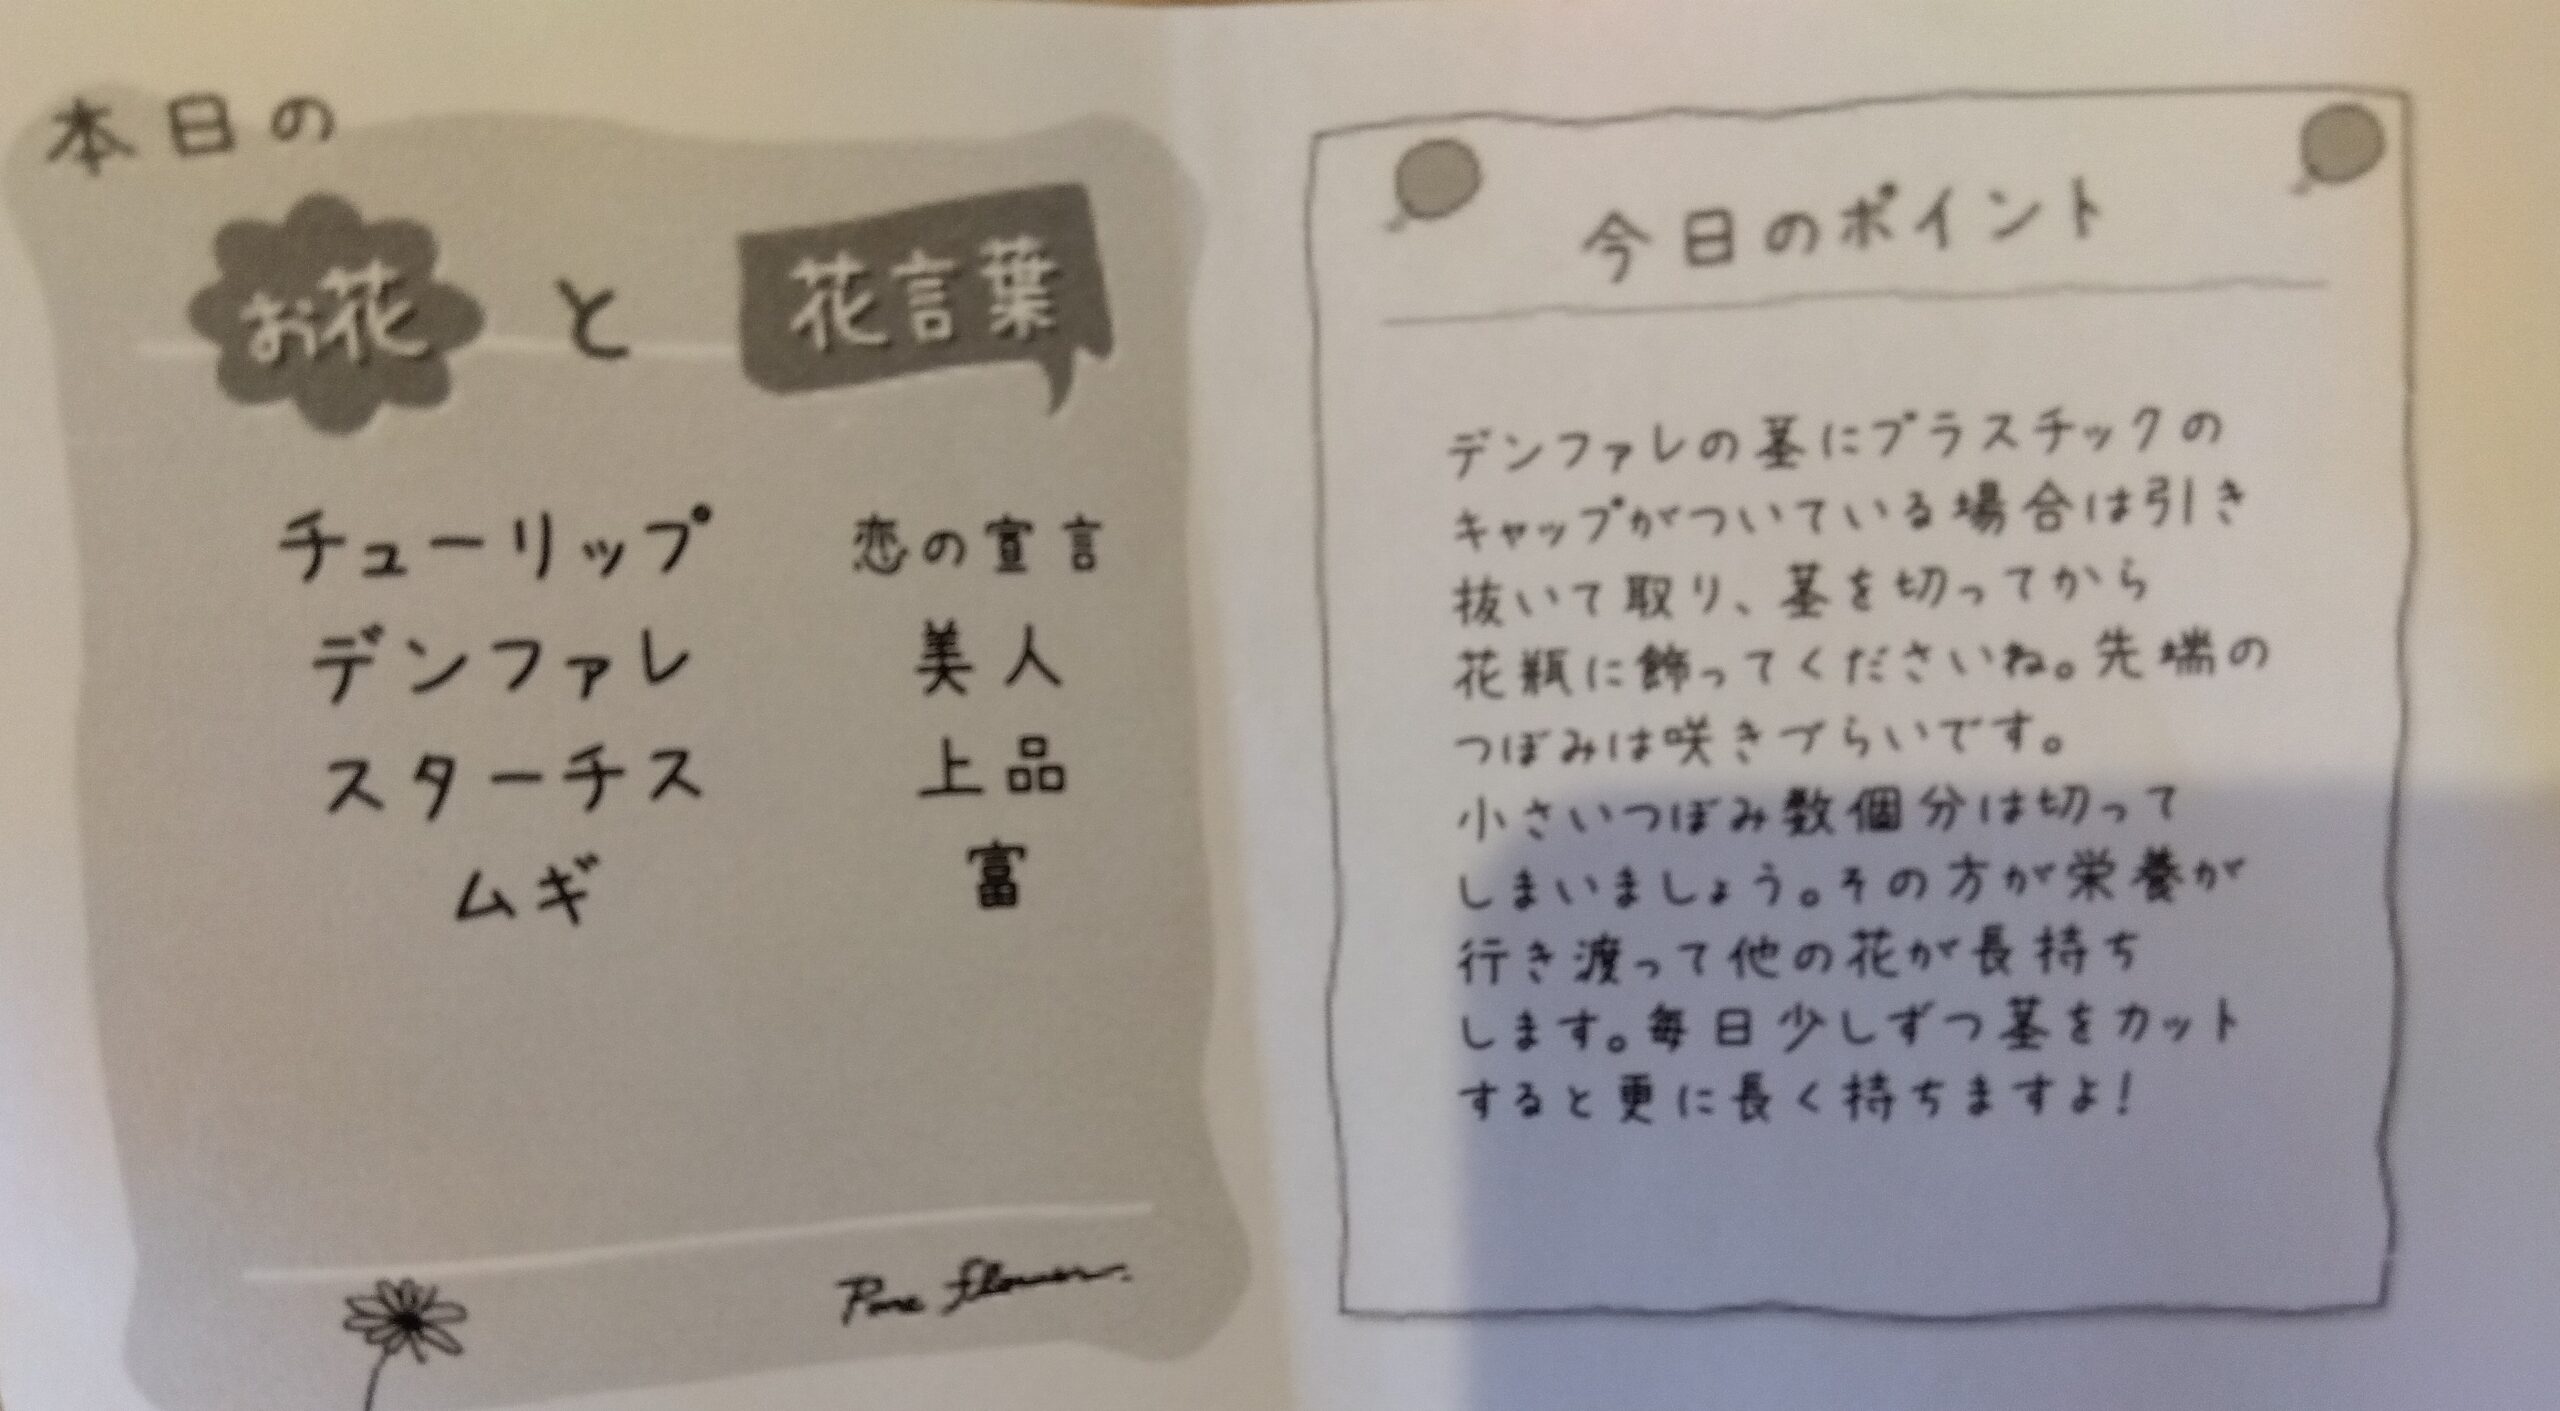 本日の
お花と花言葉
チューリップ 恋の宣言
デンファレ 美人
スターチス 上品
ムギ 富
Pure flower.
今日のポイント
デンファレの茎にプラスチックの
キャップがついている場合は引き
抜いて取り、茎を切ってから
花瓶に飾ってくださいね。先端の
つぼみは咲きづらいです。
小さいつぼみ数個分は切って
しまいましょう。その方が栄養が
行き渡って他の花が長持ち
します。毎日少しずつ茎をカット
すると更に長く持ちますよ!